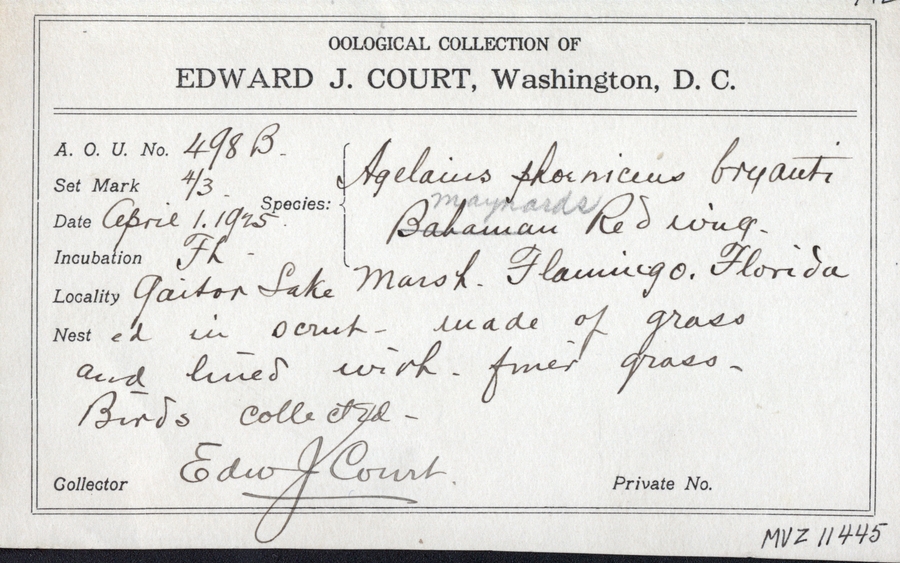 OOLOGICAL COLLECTION OF
EDWARD J. COURT, Washington, D. C.
A. O. U. No. 498 B.
Set Mark 4/3
Date April 1. 1925.
Species: Agelaius phoeniceus bryanti
maynards
Bahaman Redwing.
Incubation Fh
Locality Gaitor Lake Marsh. Flamingo. Florida
Nest ed in scrut - made of grass
and lined with finer grass -
Birds collected -
Collector Edw J Court.
Private No.
MVZ 11445